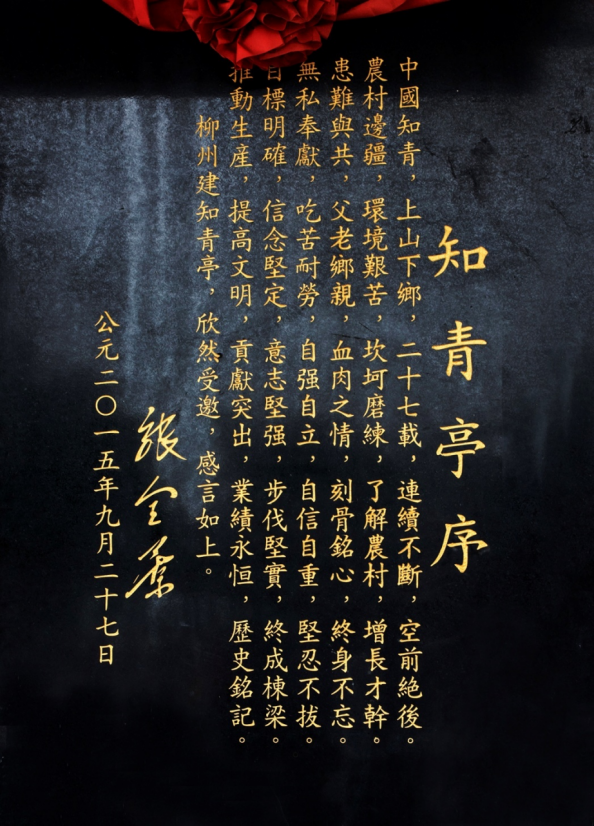 知青亭序
中國知青，上山下鄉，二十七載，連續不斷，空前絕後。
農村邊疆，環境艱苦，坎坷磨練，了解農村，增長才幹。
患難與共，父老鄉親，血肉之情，刻骨銘心，終身不忘。
無私奉獻，吃苦耐勞，自强自立，自信自重，堅忍不拔。
目標明確，信念堅定，意志堅强，步伐堅實，終成棟梁。
推動生産，提高文明，貢獻突出，業績永恒，歷史銘記。
柳州建知青亭，欣然受邀，感言如上。
公元二〇一五年九月二十七日